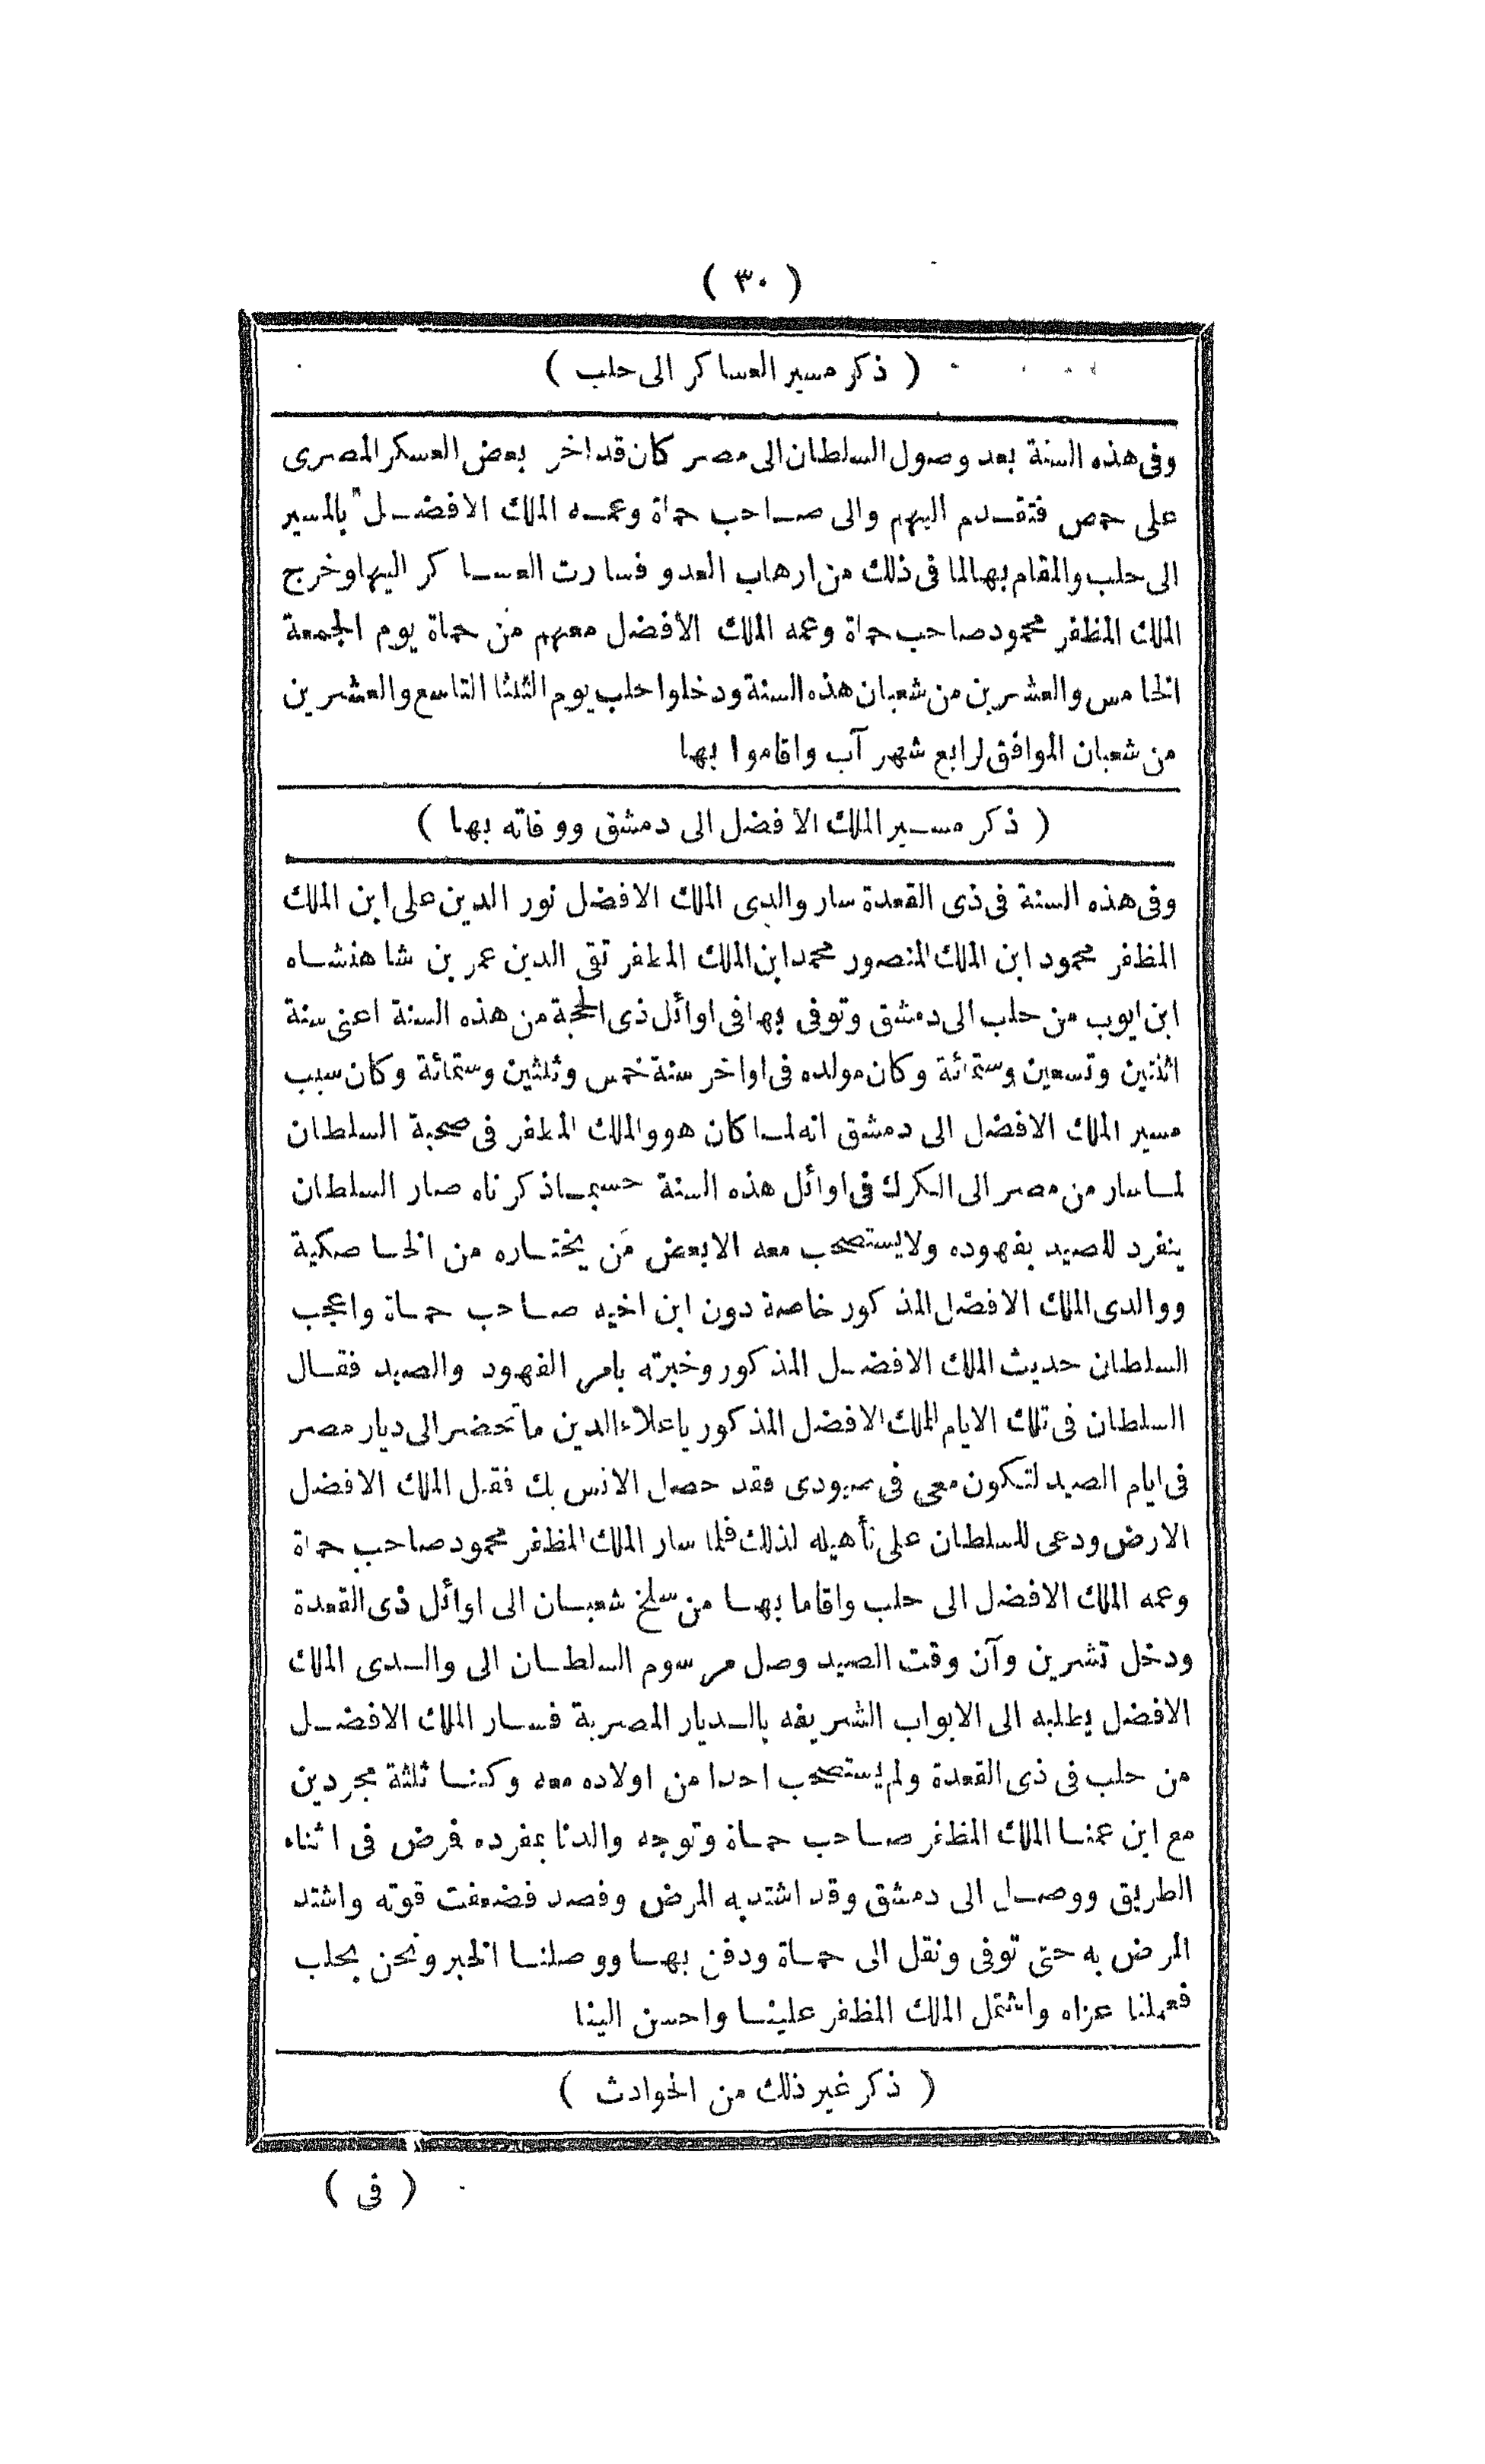 ( ٣٠ )
( ذكر مسير العساكر الى حلب )
وفى هذه السنة بعد وصول السلطان الى مصر كان قد اخر بعض العسكر المصرى
على حمص فتقدم اليهم والى صاحب حماة وعمه الملك الافضل بالمسير
الى حلب والمقام بها لما فى ذلك من ارهاب العدو فسارت العساكر اليها وخرج
الملك المظفر محمود صاحب حماة وعمه الملك الأفضل معهم من حماة يوم الجمعة
الخامس والعشرين من شعبان هذه السنة ودخلوا حلب يوم الثلثا التاسع والعشرين
من شعبان الموافق لرابع شهر آب واقاموا بها
( ذكر مسير الملك الافضل الى دمشق ووفاته بها )
وفى هذه السنة فى ذى القعدة سار والدى الملك الافضل نور الدين على ابن الملك
المظفر محمود ابن الملك المنصور محمد ابن الملك المظفر تقى الدين عمر بن شاهنشاه
ابن ايوب من حلب الى دمشق وتوفى بها فى اوائل ذى الحجة من هذه السنة اعنى سنة
اثنتين وتسعين وستمائة وكان مولده فى اواخر سنة خمس وثلثين وستمائة وكان سبب
مسير الملك الافضل الى دمشق انه لما كان هو والملك المظفر فى صحبة السلطان
لما سار من مصر الى الكرك فى اوائل هذه السنة حسبما ذكرناه صار السلطان
ينفرد للصيد بفهوده ولا يستصحب معه الا بعض مَن يختاره من الخاصكية
ووالدى الملك الافضل المذكور خاصة دون ابن اخيه صاحب حماة واعجب
السلطان حديث الملك الافضل المذكور وخبرته بامر الفهود والصيد فقال
السلطان فى تلك الايام للملك الافضل المذكور ياعلاءالدين ما تحضر الى ديار مصر
فى ايام الصيد لتكون معى فى صيودى فقد حصل الانس بك فقبل الملك الافضل
الارض ودعى للسلطان على تأهيله لذلك فلما سار الملك المظفر محمود صاحب حماة
وعمه الملك الافضل الى حلب واقاما بها من سلخ شعبان الى اوائل ذى القعدة
ودخل تشرين وآن وقت الصيد وصل مرسوم السلطان الى والدى الملك
الافضل يطلبه الى الابواب الشريفه بالديار المصرية فسار الملك الافضل
من حلب فى ذى القعدة ولم يستصحب احدا من اولاده معه وكنا ثلثة مجردين
مع ابن عمنا الملك المظفر صاحب حماة وتوجه والدنا بمفرده فمرض فى اثناء
الطريق ووصل الى دمشق وقد اشتد به المرض وفصد فضعفت قوته واشتد
المرض به حتى توفى ونقل الى حماة ودفن بها ووصلنا الخبر ونحن بحلب
فعملنا عزاه واشتمل الملك المظفر علينا واحسن الينا
( ذكر غير ذلك من الحوادث )
( فى )